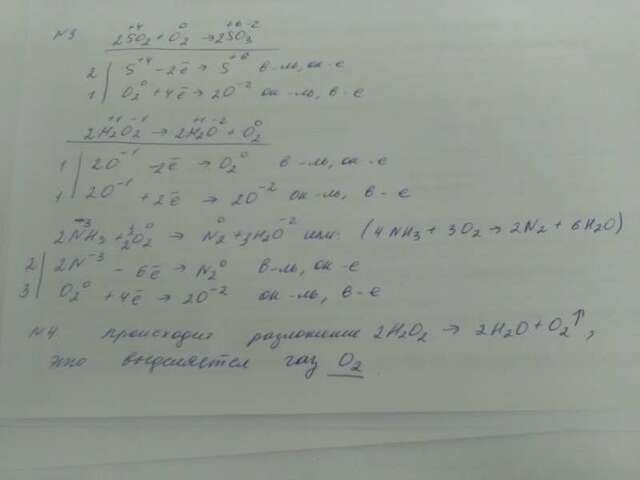 N3 2S⁺⁴O₂ + O₂⁰ → 2S⁺⁶O₃⁻²
2 | S⁺⁴ - 2ē → S⁺⁶ в-ль, ок-е
1 | O₂⁰ + 4ē → 2O⁻² ок-ль, в-е
2H₂⁺¹O₂⁻¹ → 2H₂⁺¹O⁻² + O₂⁰
1 | 2O⁻¹ - 2ē → O₂⁰ в-ль, ок-е
1 | 2O⁻¹ + 2ē → 2O⁻² ок-ль, в-е
2N⁻³H₃ + 3/2O₂⁰ → N₂⁰ + 3H₂O⁻² или (4NH₃ + 3O₂ → 2N₂ + 6H₂O)
2 | 2N⁻³ - 6ē → N₂⁰ в-ль, ок-е
3 | O₂⁰ + 4ē → 2O⁻² ок-ль, в-е
N4 происходит разложение 2H₂O₂ → 2H₂O + O₂↑,
выделяется газ O₂